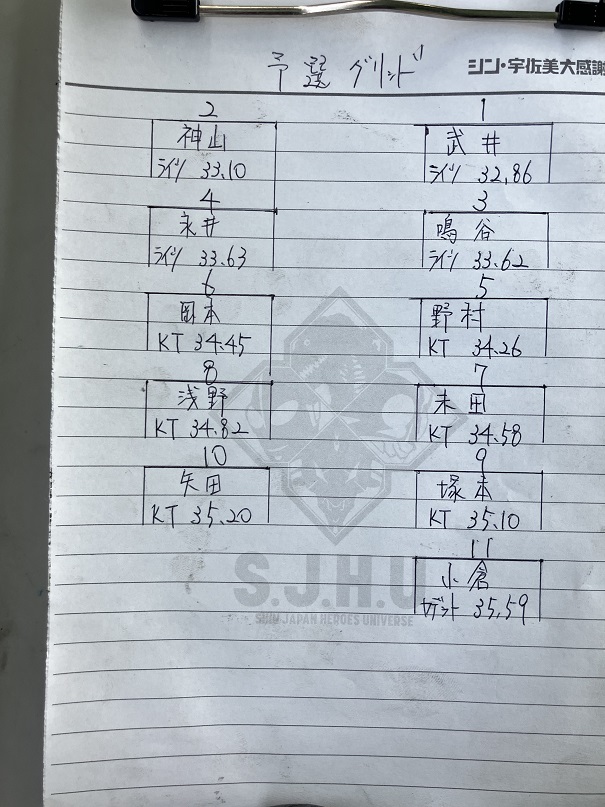 予選グリッド
シン・宇佐美大感謝
2
神山
ライツ 33.10
1
武井
ライツ 32.86
4
永井
ライツ 33.63
3
鳴谷
ライツ 33.62
6
岡本
KT 34.45
5
野村
KT 34.26
8
浅野
KT 34.82
7
末田
KT 34.58
10
矢田
KT 35.20
9
塚本
KT 35.10
11
小倉
カデット 35.59
S.J.H.U
SHIN JAPAN HEROES UNIVERSE